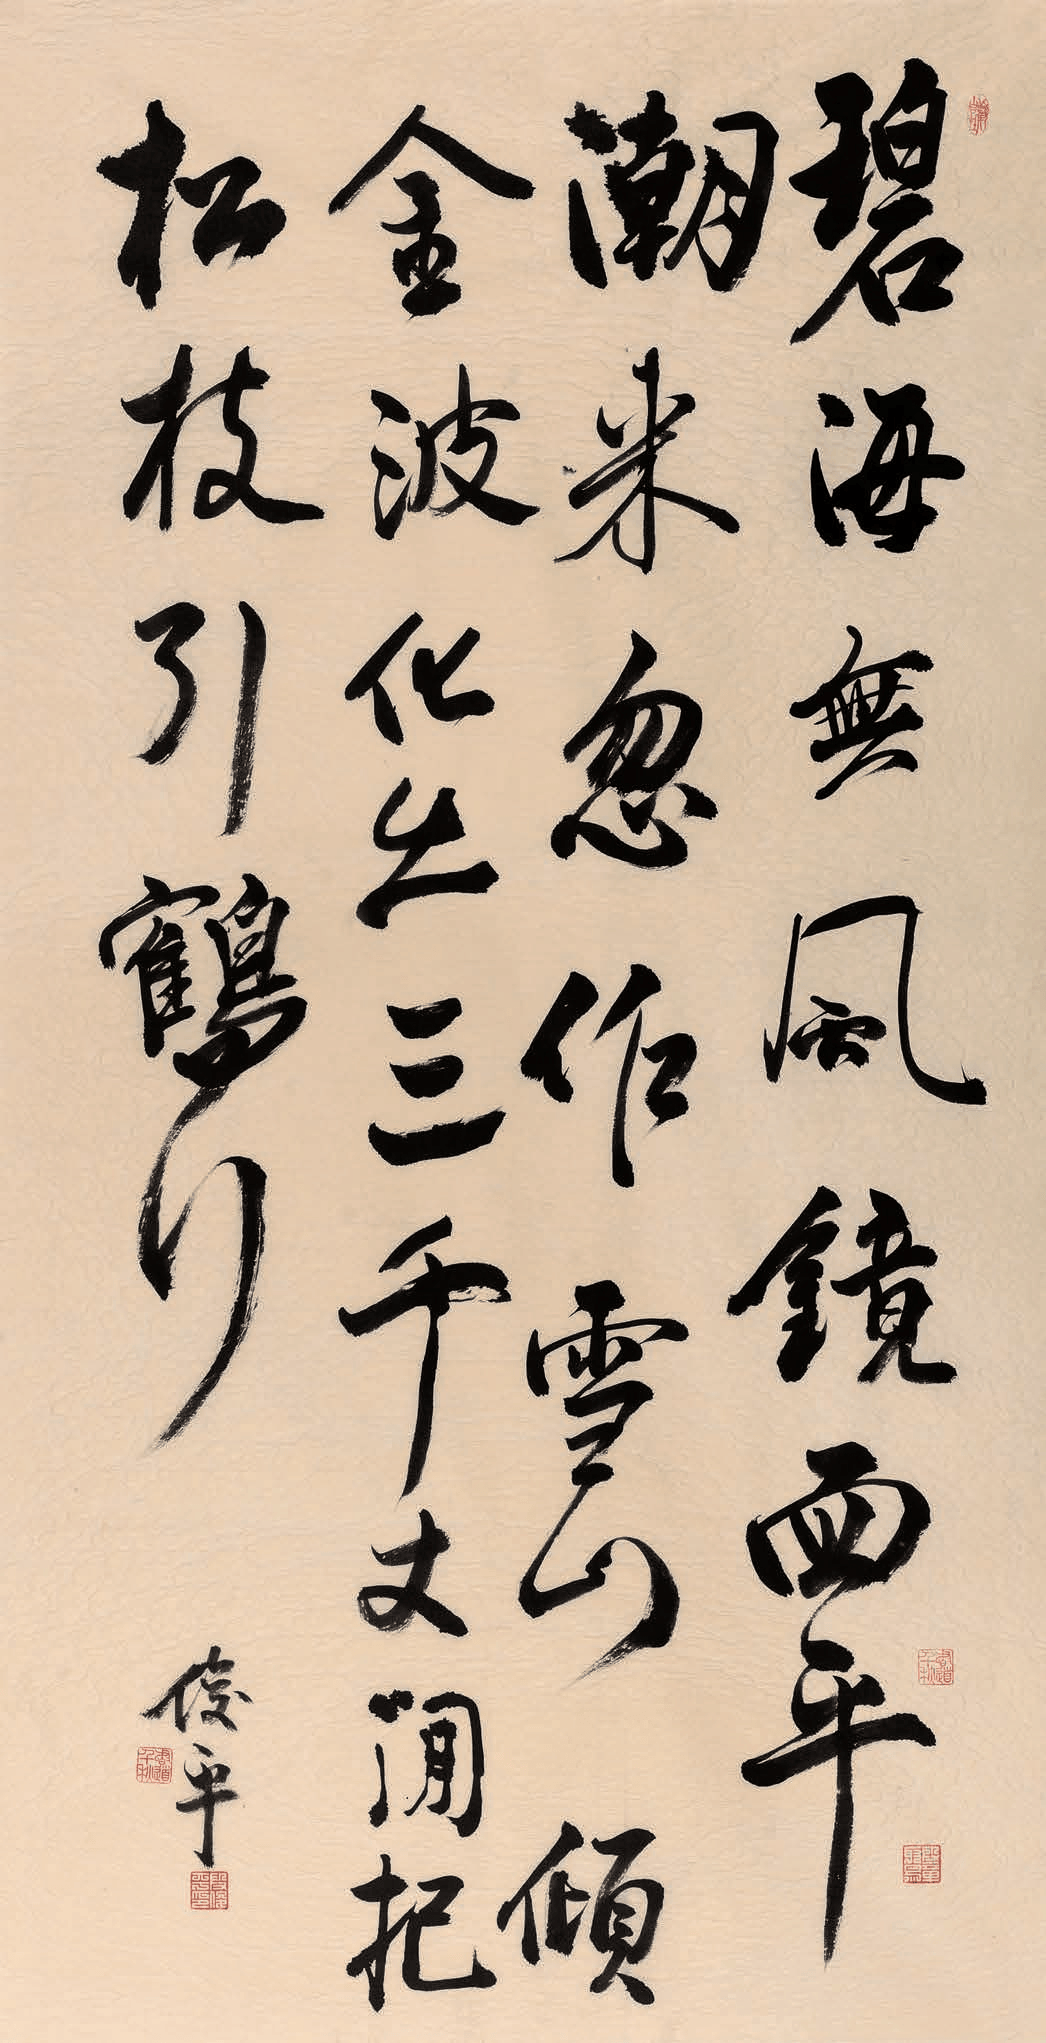 碧海無風鏡面平
潮來忽作雪山傾
金波化出三千丈閒把
松枝引鶴行
俊平